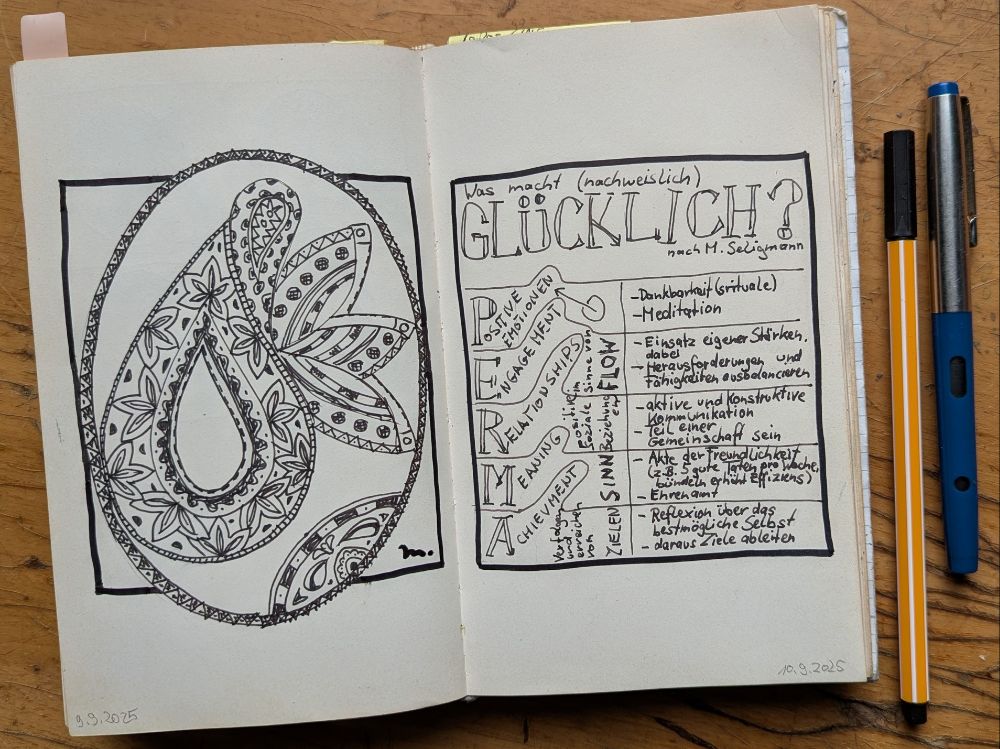 Was macht (nachweislich)
GLÜCKLICH?
nach M. Seligmann
POSITIVE
EMOTIONEN
- Dankbarkeit(srituale)
- Meditation
ENGAGEMENT
FLOW
- Einsatz eigener Stärken,
dabei
- Herausforderungen und
Fähigkeiten ausbalancieren
RELATIONSHIPS
positive im
Soziale Sinne von
Beziehungen
- aktive und konstruktive
Kommunikation
- Teil einer
Gemeinschaft sein
MEANING
SINN
- Akte der Freundlichkeit
(z.B. 5 gute Taten pro Woche,
bündeln erhöht Effiziens)
- Ehrenamt
ACHIEVMENT
Verfolgen
und
erreichen
von
ZIELEN
- Reflexion über das
bestmögliche Selbst
- daraus Ziele ableiten
m.
9.9.2025
10.9.2025